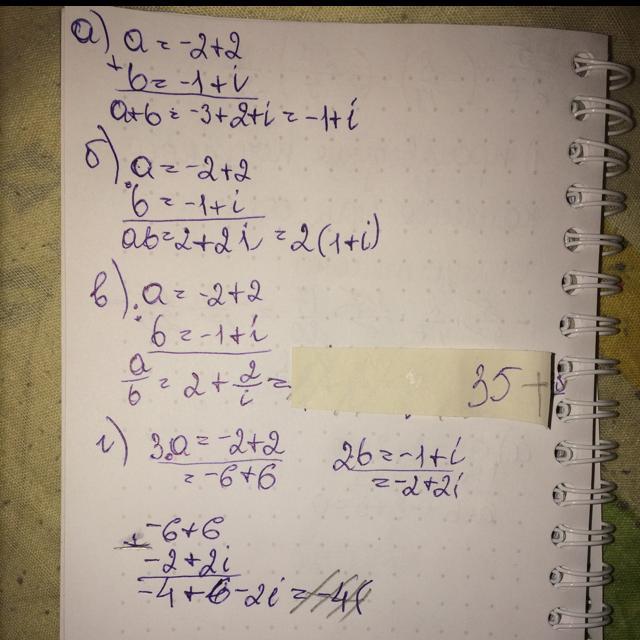 а) a = -2+2
+ b = -1+i
a+b = -3+2+i = -1+i
б) a = -2+2
· b = -1+i
ab = 2+2i = 2(1+i)
в) a = -2+2
: b = -1+i
a/b = 2 + 2/i =
35+
г) 3·a = -2+2
= -6+6
2b = -1+i
= -2+2i
-6+6
-2+2i
-4+6-2i =